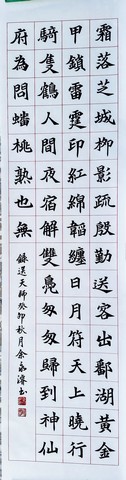 霜落芝城柳影疏殷勤送客出鄱湖黃金
甲鎖雷霆印紅綿韜纏日月符天上曉行
騎隻鶴人間夜宿解雙鳧匆匆歸到神仙
府為問蟠桃熟也無
錄送天師癸卯秋月余永書